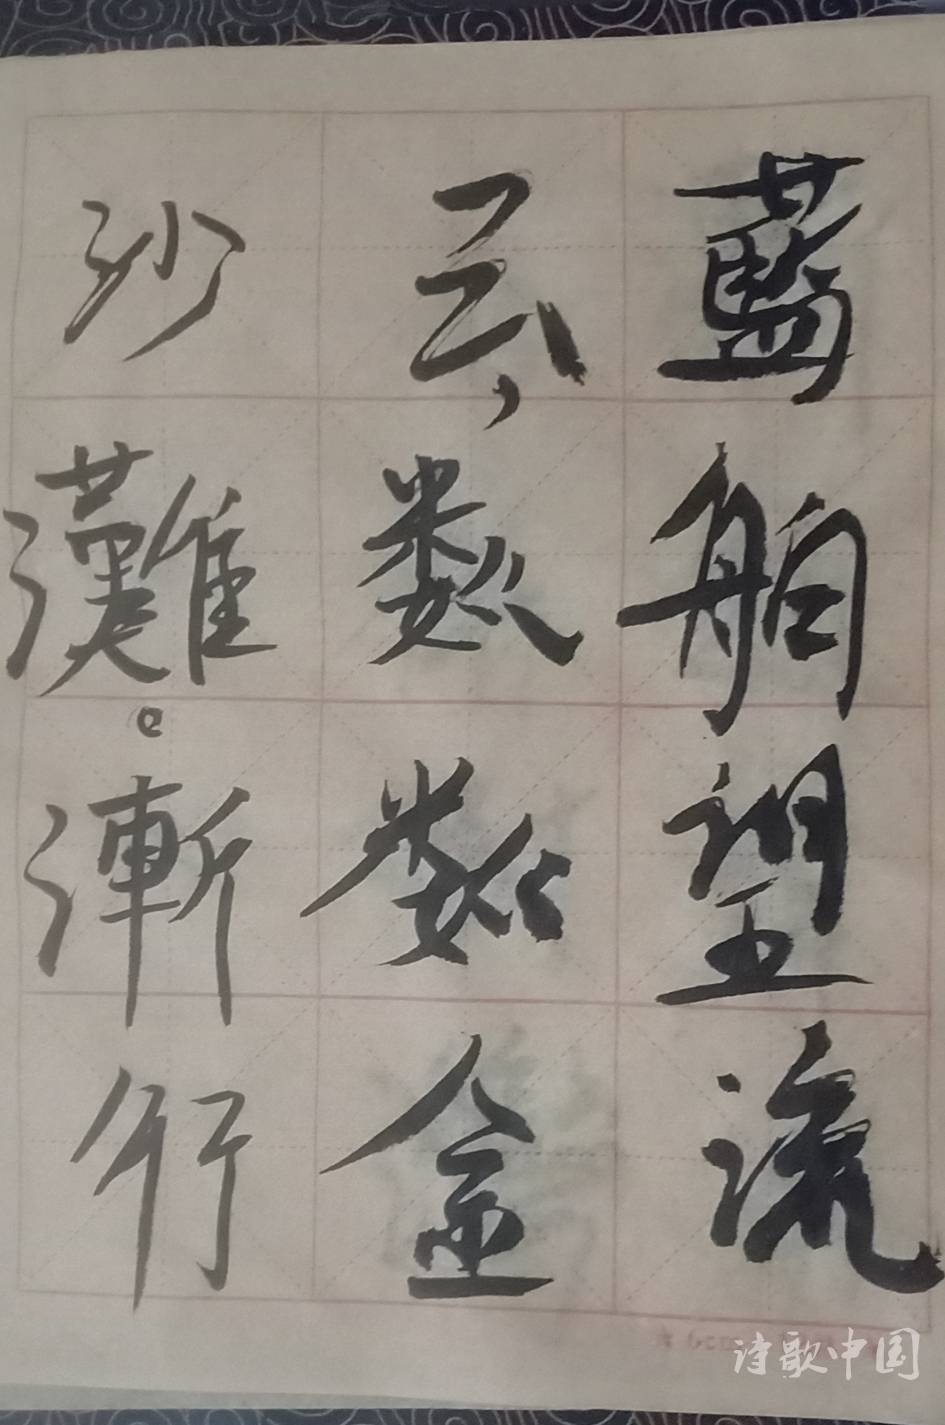 藍舶望流
云，数数金
沙灘。漸行
诗歌中国